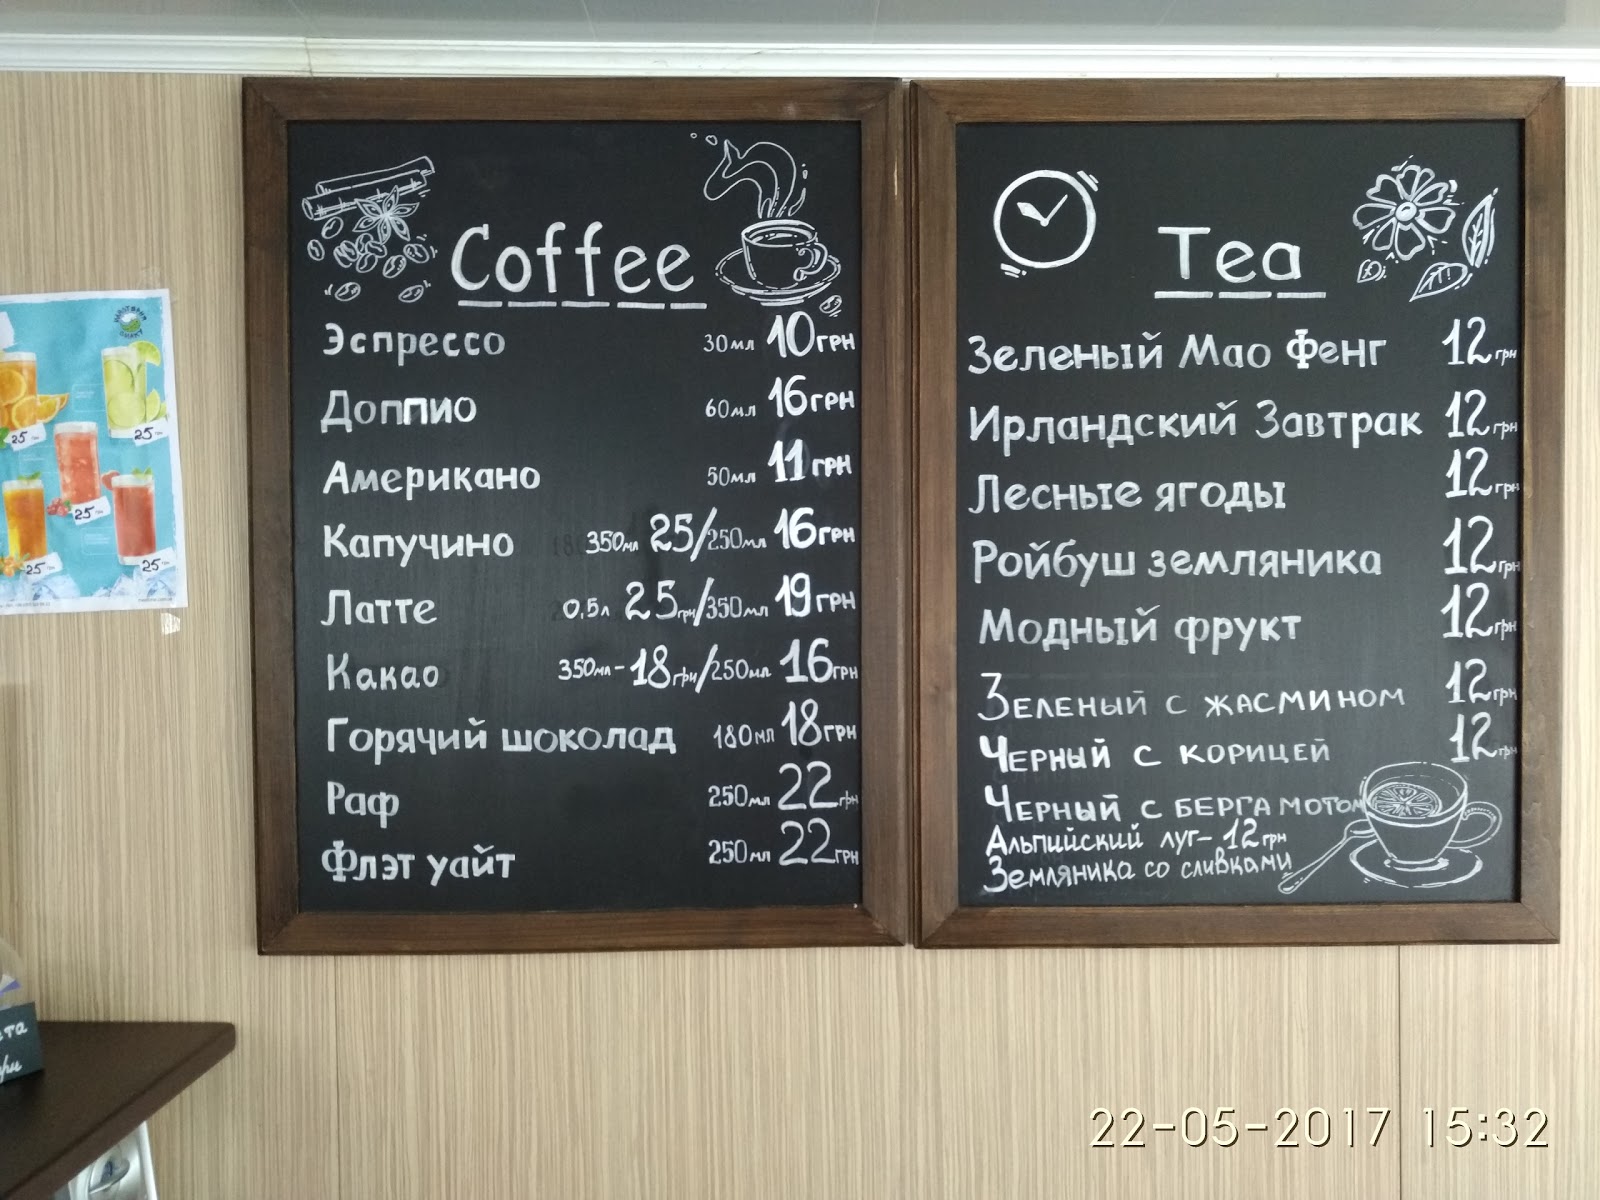 Coffee
Эспрессо 30мл 10грн
Доппио 60мл 16грн
Американо 50мл 11грн
Капучино 350мл 25/250мл 16грн
Латте 0,5л 25грн/350мл 19грн
Какао 350мл-18грн/250мл 16грн
Горячий шоколад 180мл 18грн
Раф 250мл 22грн
Флэт уайт 250мл 22грн
Tea
Зеленый Мао Фенг 12грн
Ирландский Завтрак 12грн
Лесные ягоды 12грн
Ройбуш земляника 12грн
Модный фрукт 12грн
Зеленый с жасмином 12грн
Черный с корицей 12грн
Черный с бергамотом
Альпийский луг-12грн
Земляника со сливками
25
25
25
25
25
22-05-2017 15:32